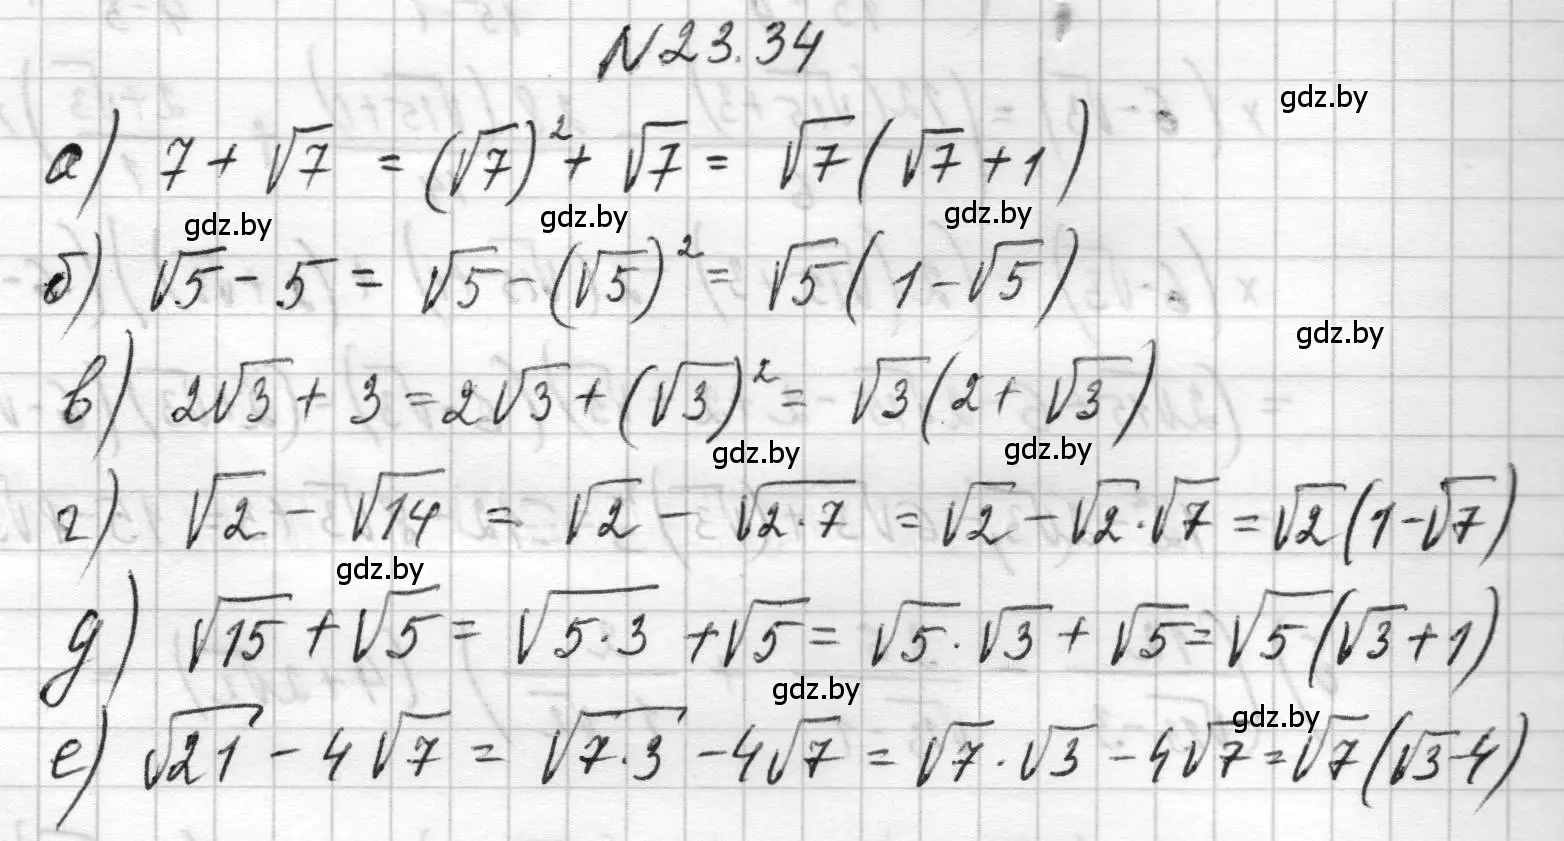 N 23.34
gdz.by
а) 7 + √7 = (√7)² + √7 = √7(√7 + 1)
gdz.by gdz.by gdz.by
б) √5 - 5 = √5 - (√5)² = √5(1 - √5)
gdz.by
в) 2√3 + 3 = 2√3 + (√3)² = √3(2 + √3)
gdz.by gdz.by
г) √2 - √14 = √2 - √2·7 = √2 - √2·√7 = √2(1 - √7)
gdz.by
д) √15 + √5 = √5·3 + √5 = √5·√3 + √5 = √5(√3 + 1)
gdz.by gdz.by
е) √21 - 4√7 = √7·3 - 4√7 = √7·√3 - 4√7 = √7(√3 - 4)